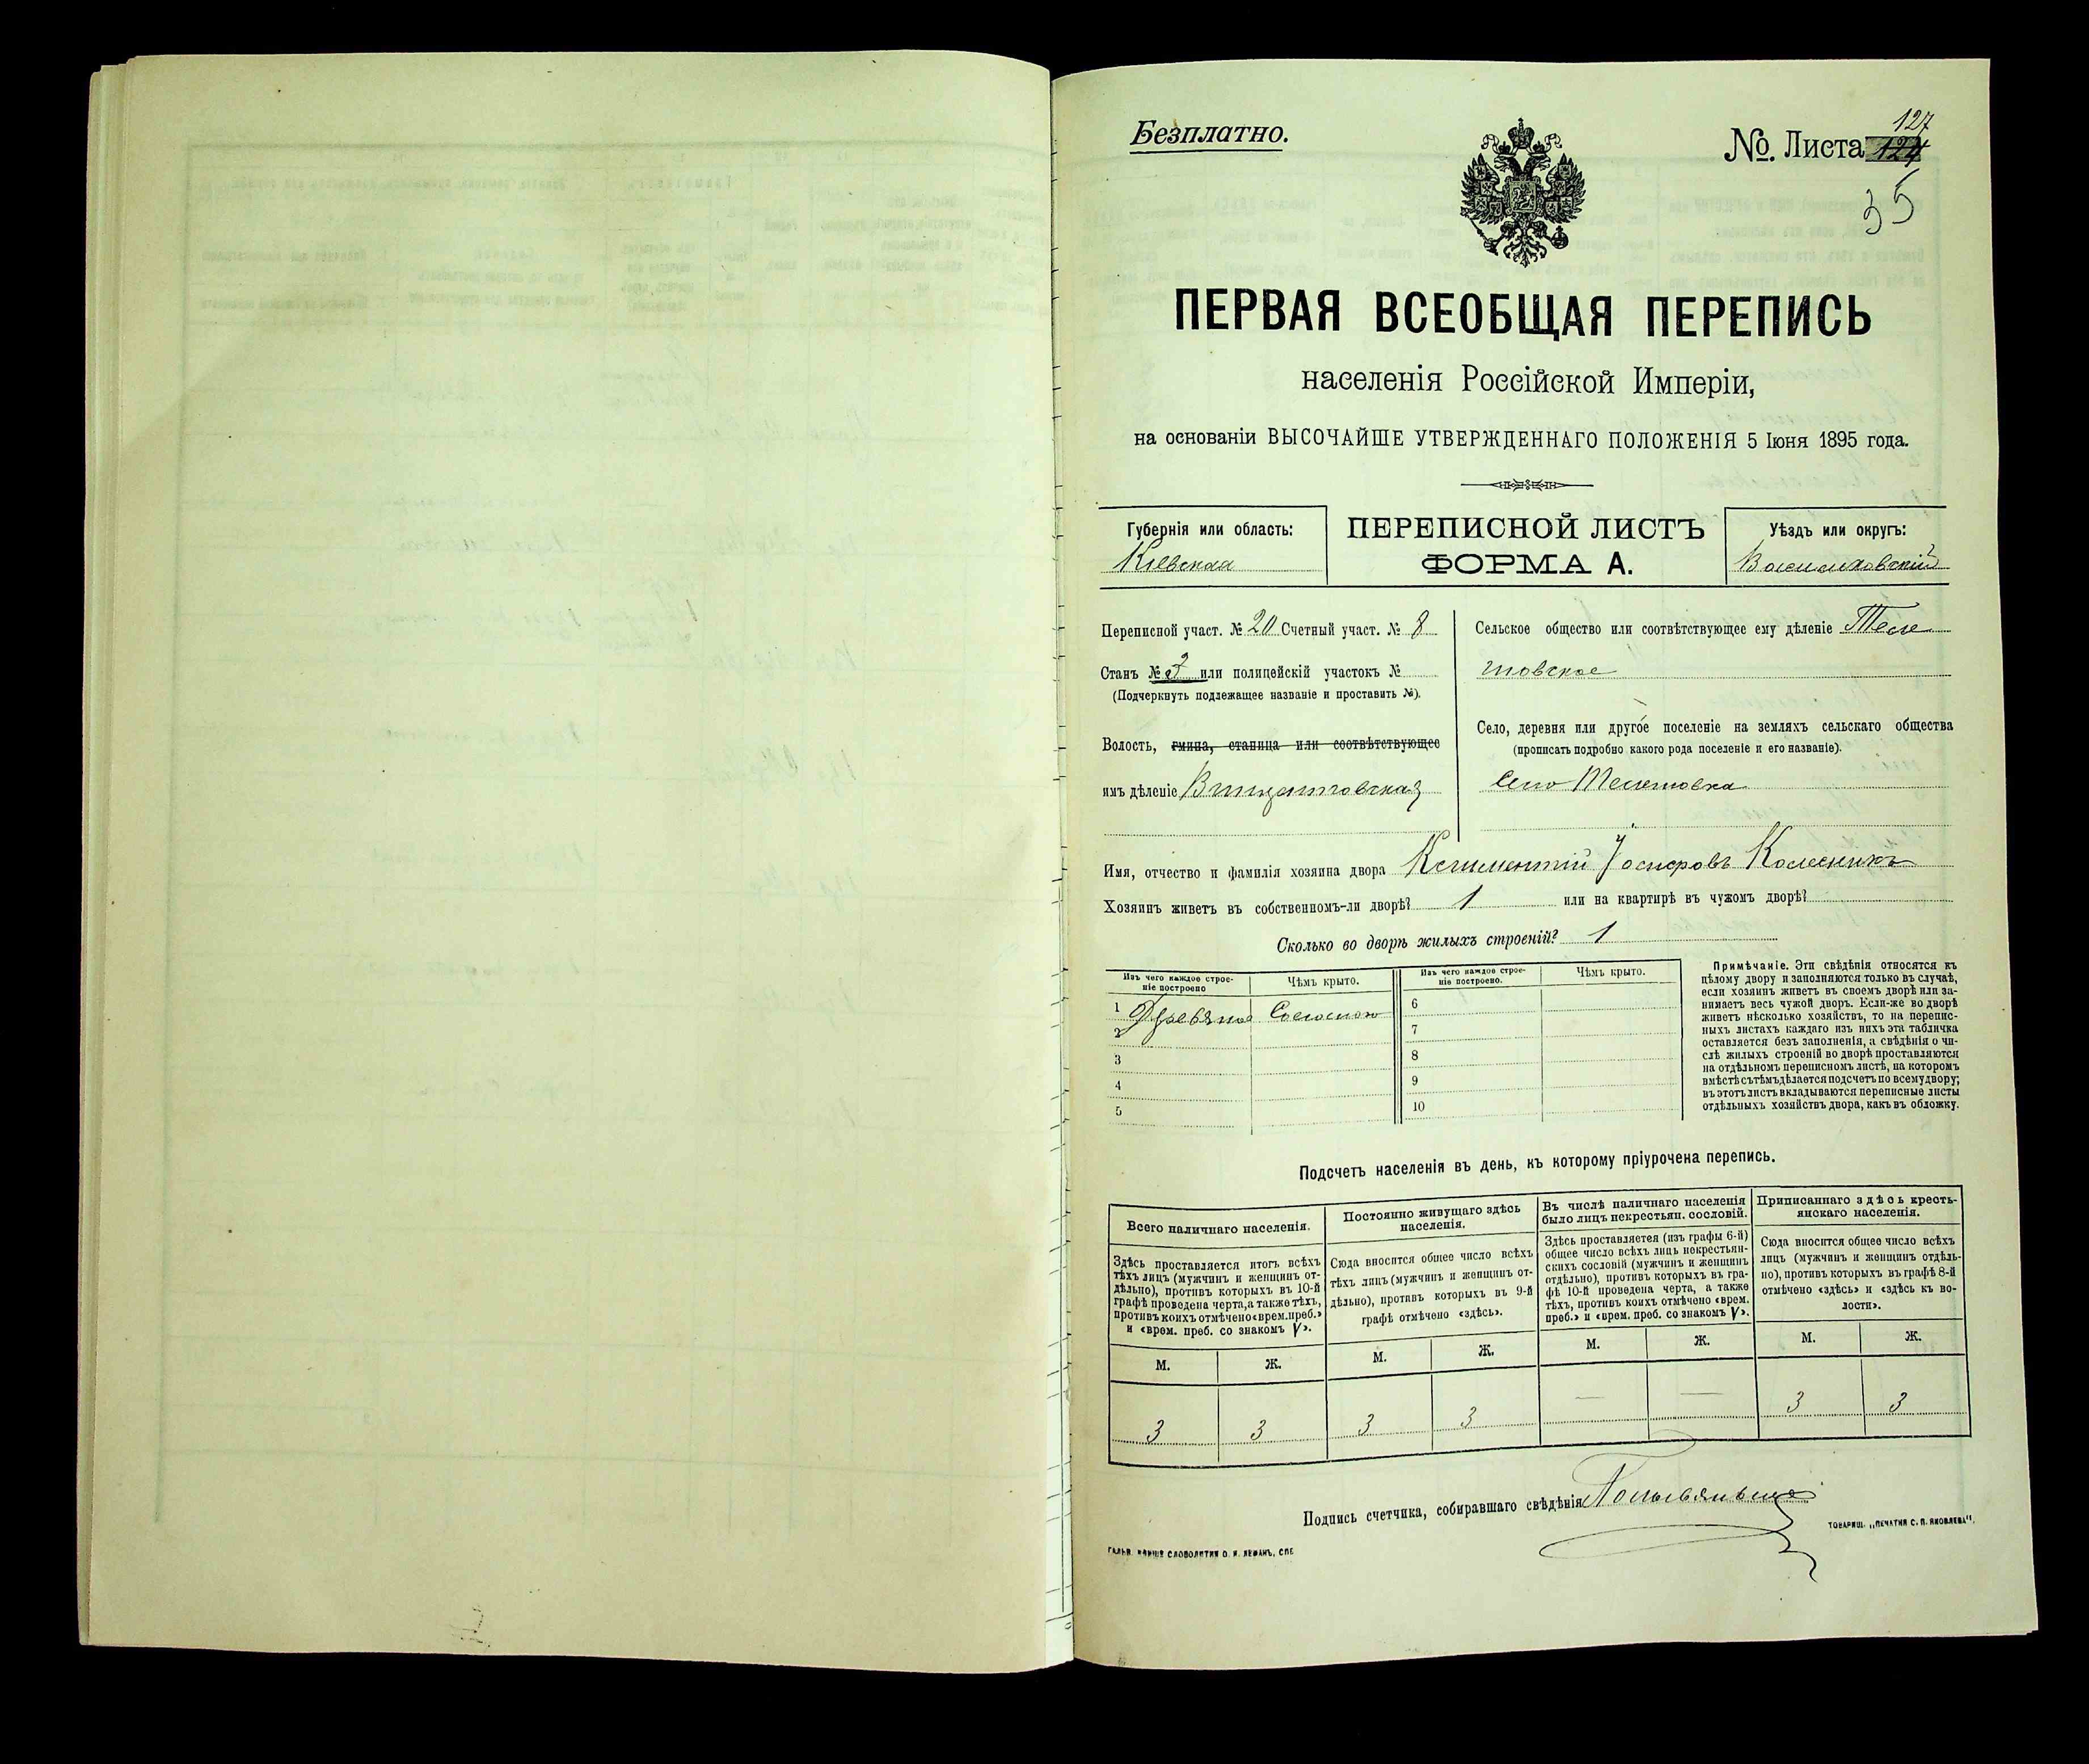 Безплатно.
№. Листа 127
124
35
ПЕРВАЯ ВСЕОБЩАЯ ПЕРЕПИСЬ
населенія Россійской Имперіи,
на основаніи ВЫСОЧАЙШЕ УТВЕРЖДЕННАГО ПОЛОЖЕНІЯ 5 Іюня 1895 года.
Губернія или область:
Кіевская
ПЕРЕПИСНОЙ ЛИСТЪ
ФОРМА А.
Уѣздъ или округъ:
Васильковскій
Переписной участ. № 20 Счетный участ. № 8
Станъ № 2 или полицейскій участокъ №
(Подчеркнуть подлежащее названіе и проставить №).
Волость, гмина, станица или соотвѣтствующее
имъ дѣленіе
Сельское общество или соотвѣтствующее ему дѣленіе Теле
шовское
Село, деревня или другое поселеніе на земляхъ сельскаго общества
(прописать подробно какого рода поселеніе и его названіе).
Село Телешовка
Имя, отчество и фамилія хозяина двора Климентій Іосифовъ Колесникъ
Хозяинъ живетъ въ собственномъ-ли дворѣ? 1 или на квартирѣ въ чужомъ дворѣ?
Сколько во дворѣ жилыхъ строеній? 1
Изъ чего каждое строе-
ніе построено
Чѣмъ крыто.
Изъ чего каждое строе-
ніе построено.
Чѣмъ крыто.
1 Древяное Соломою
2
3
4
5
6
7
8
9
10
Примѣчаніе. Эти свѣдѣнія относятся къ
цѣлому двору и заполняются только въ случаѣ,
если хозяинъ живетъ въ своемъ дворѣ или за-
нимаетъ весь чужой дворъ. Если-же во дворѣ
живетъ нѣсколько хозяйствъ, то на перепис-
ныхъ листахъ каждаго изъ нихъ эта табличка
оставляется безъ заполненія, а свѣдѣнія о чи-
слѣ жилыхъ строеній во дворѣ проставляются
на отдѣльномъ переписномъ листѣ, на которомъ
вмѣстѣ съ тѣмъ дѣлается подсчетъ по всему двору;
въ этотъ листъ вкладываются переписные листы
отдѣльныхъ хозяйствъ двора, какъ въ обложку.
Подсчетъ населенія въ день, къ которому пріурочена перепись.
Всего наличнаго населенія.
Здѣсь проставляется итогъ всѣхъ
тѣхъ лицъ (мужчинъ и женщинъ от-
дѣльно), противъ которыхъ въ 10-й
графѣ проведена черта, а также тѣхъ,
противъ коихъ отмѣчено «врем. преб.»
и «врем. преб. со знакомъ V».
Постоянно живущаго здѣсь
населенія.
Сюда вносится общее число всѣхъ
тѣхъ лицъ (мужчинъ и женщинъ от-
дѣльно), противъ которыхъ въ 9-й
графѣ отмѣчено «здѣсь».
Въ числѣ наличнаго населенія
было лицъ некрестьян. сословій.
Здѣсь проставляется (изъ графы 6-й)
общее число всѣхъ лицъ некрестьян-
скихъ сословій (мужчинъ и женщинъ
отдѣльно), противъ которыхъ въ гра-
фѣ 10-й проведена черта, а также
тѣхъ, противъ коихъ отмѣчено «врем.
преб.» и «врем. преб. со знакомъ V».
Приписаннаго здѣсь кресть-
янскаго населенія.
Сюда вносится общее число всѣхъ
лицъ (мужчинъ и женщинъ отдѣль-
но), противъ которыхъ въ графѣ 8-й
отмѣчено «здѣсь» и «здѣсь къ во-
лости».
М. Ж. М. Ж. М. Ж. М. Ж.
3 3 3 3 — — 3 3
Подпись счетчика, собиравшаго свѣдѣнія
ТОВАРИЩ. „ПЕЧАТНЯ С. П. ЯКОВЛЕВА".
СЛОВОЛИТНИ О. И. ЛЕМАНЪ, СПБ